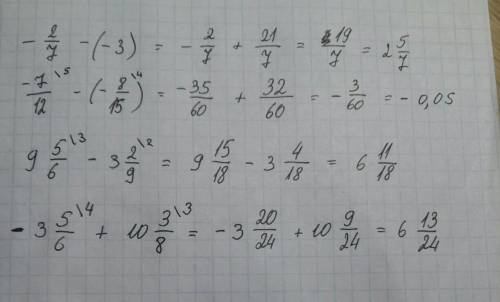 - 2/7 - (-3) = - 2/7 + 21/7 = 19/7 = 2 5/7
-7/12 \5 - (- 8/15 \4) = -35/60 + 32/60 = - 3/60 = - 0,05
9 5/6 \3 - 3 2/9 \2 = 9 15/18 - 3 4/18 = 6 11/18
- 3 5/6 \4 + 10 3/8 \3 = - 3 20/24 + 10 9/24 = 6 13/24